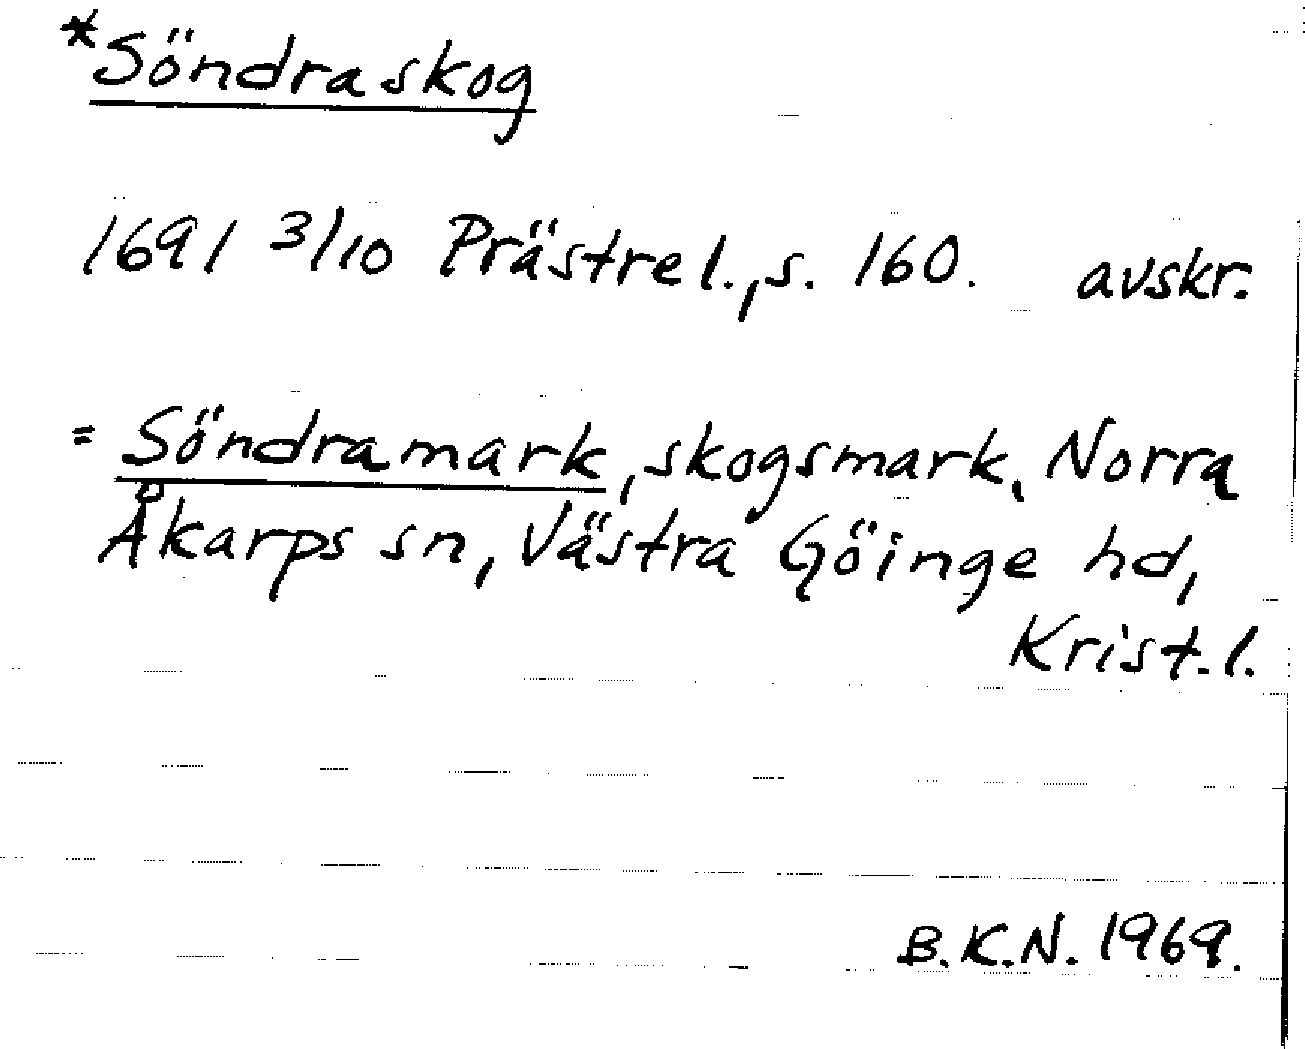 *Söndraskog
1691 3/10 Prästrel., s. 160. avskr.
= Söndramark, skogsmark, Norra
Åkarps sn, Västra Göinge hd,
Krist. l.
B.K.N. 1969.